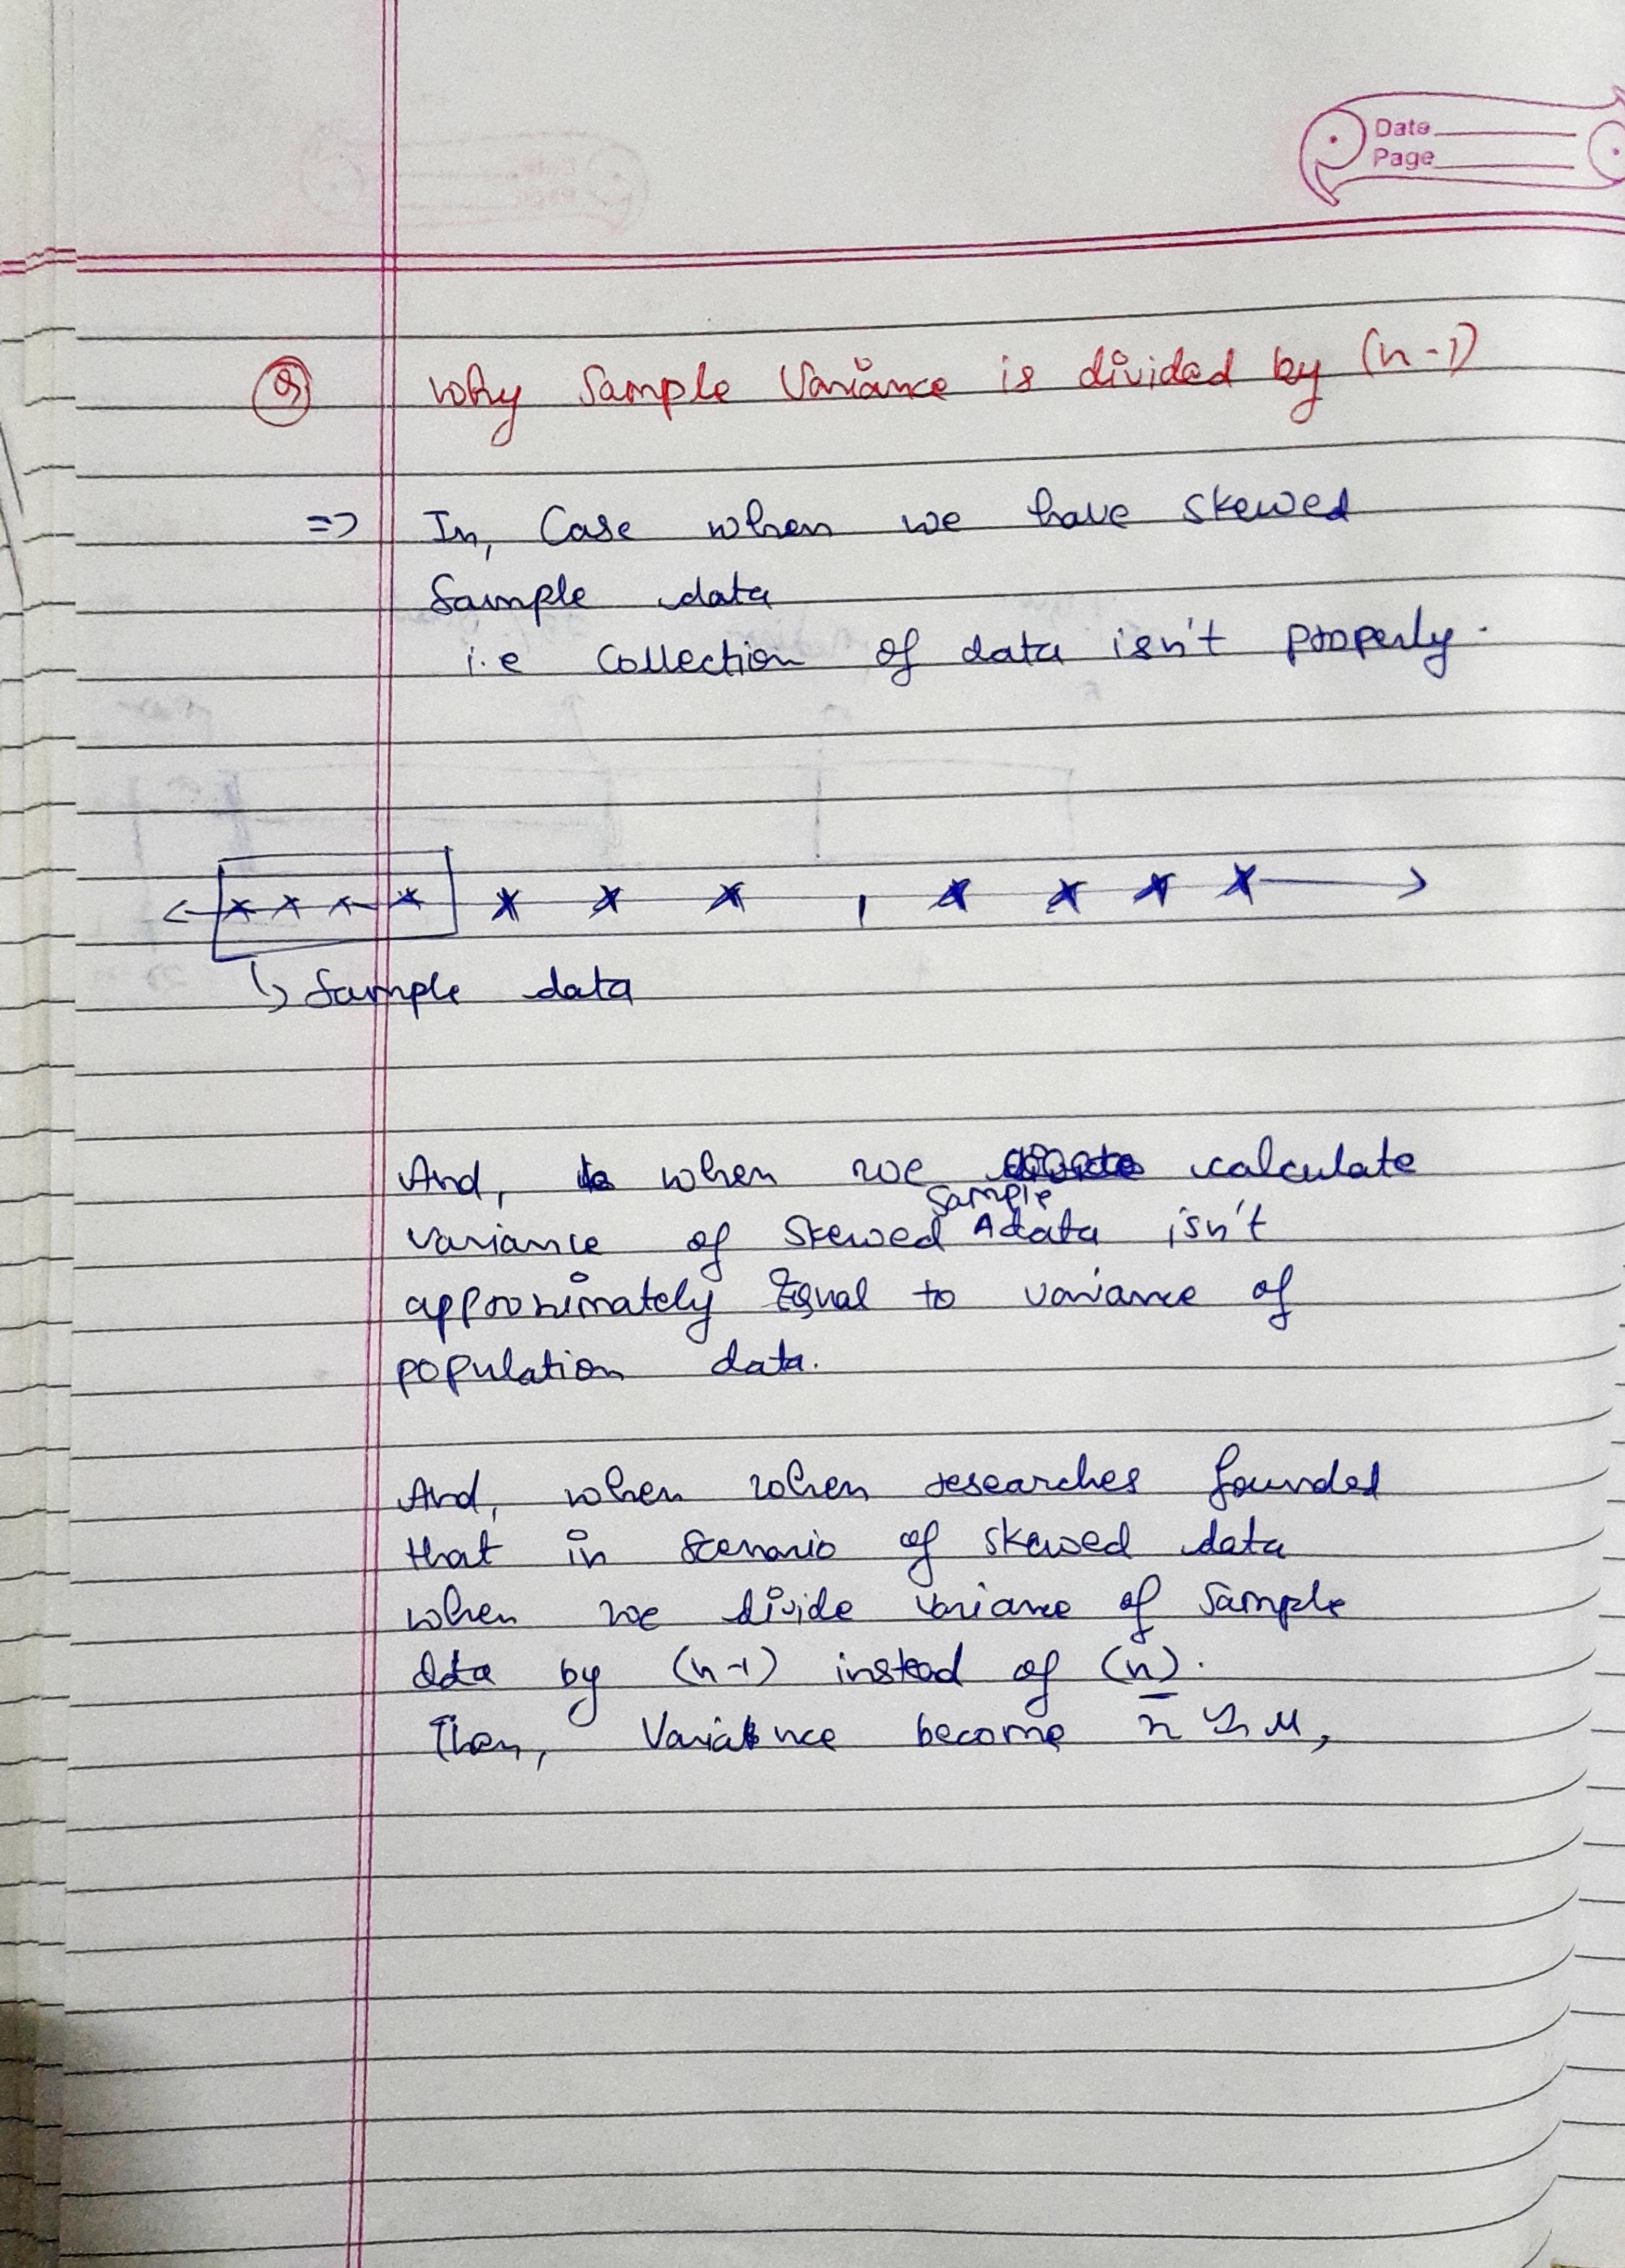 Date
Page
Q Why Sample Variance is divided by (n-1)
=> In, Case when we have skewed
Sample data
i.e Collection of data isn't properly.
Sample data
And, when we calculate
sample
variance of skewed data isn't
approximately Equal to variance of
population data.
And, when when researches founded
that in scenario of skewed data
when we divide variance of sample
data by (n-1) instead of (n).
Then, Variance become x̄ ≈ μ,